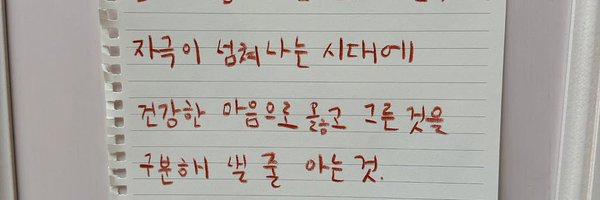 자극이 넘쳐나는 시대에
건강한 마음으로 옳고 그른 것을
구분해 낼 줄 아는 것.